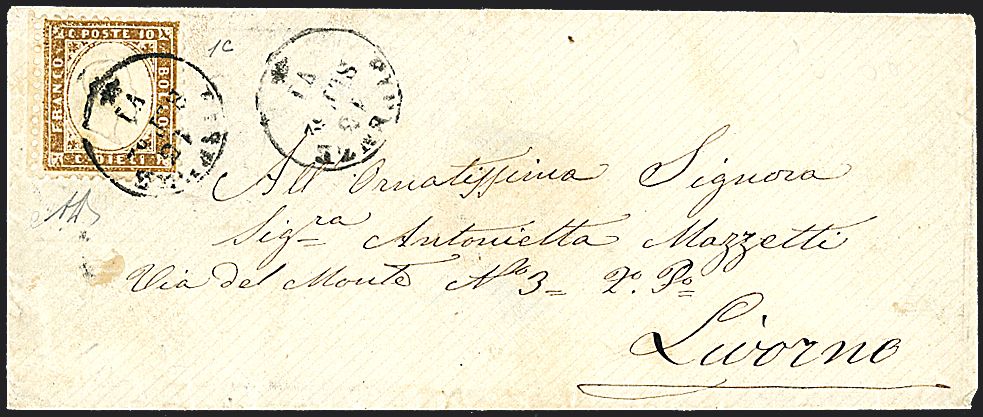 C. POSTE 10
FRANCO
BOLLO
C. DIECI 1
1c
FIRENZE
All' Ornatissima Signora
Sig.ra Antonietta Mazzetti
Via del Monte No 3= 2o. Po=
Livorno